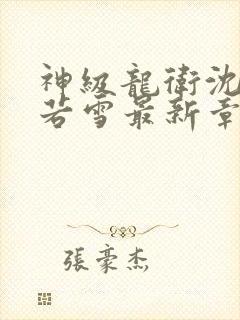 神級龍衛沈
若雪最新章
張豪杰